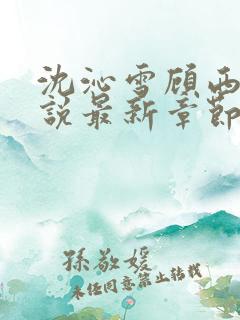 沈沁雪顾西
说最新章节
孫敬媛
未经同意禁止转载